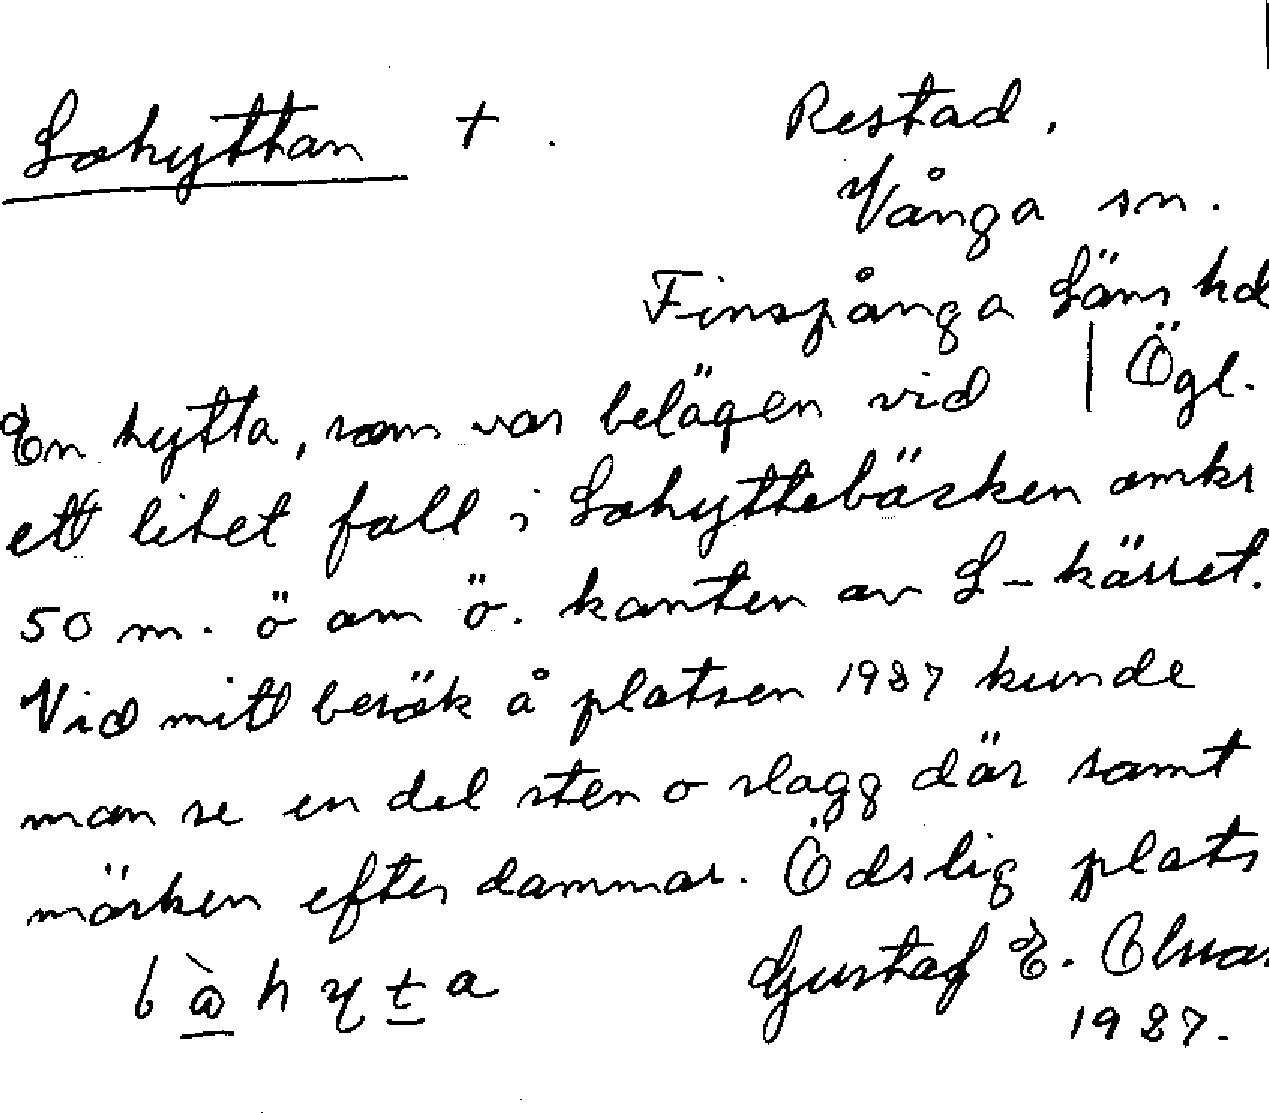 Lohyttan + .
Restad,
Vånga sn.
Finspånga Läns hd
| Ögl.
En hytta, som var belägen vid
ett litet fall i Lohyttebäcken omkr
50 m. ö om ö. kanten av L-kärret.
Vid mitt besök å platsen 1937 kunde
man se en del sten o slagg där samt
märken efter dammar. Ödslig plats
Gustaf E.
1937.